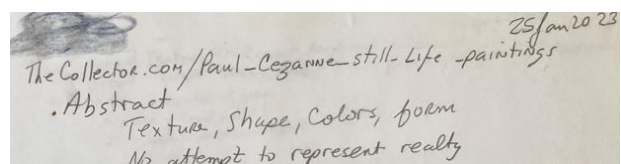 25 Jan 2023
TheCollector.com/Paul-Cezanne-still-Life-paintings
. Abstract
Texture, Shape, Colors, form
No attempt to represent realty